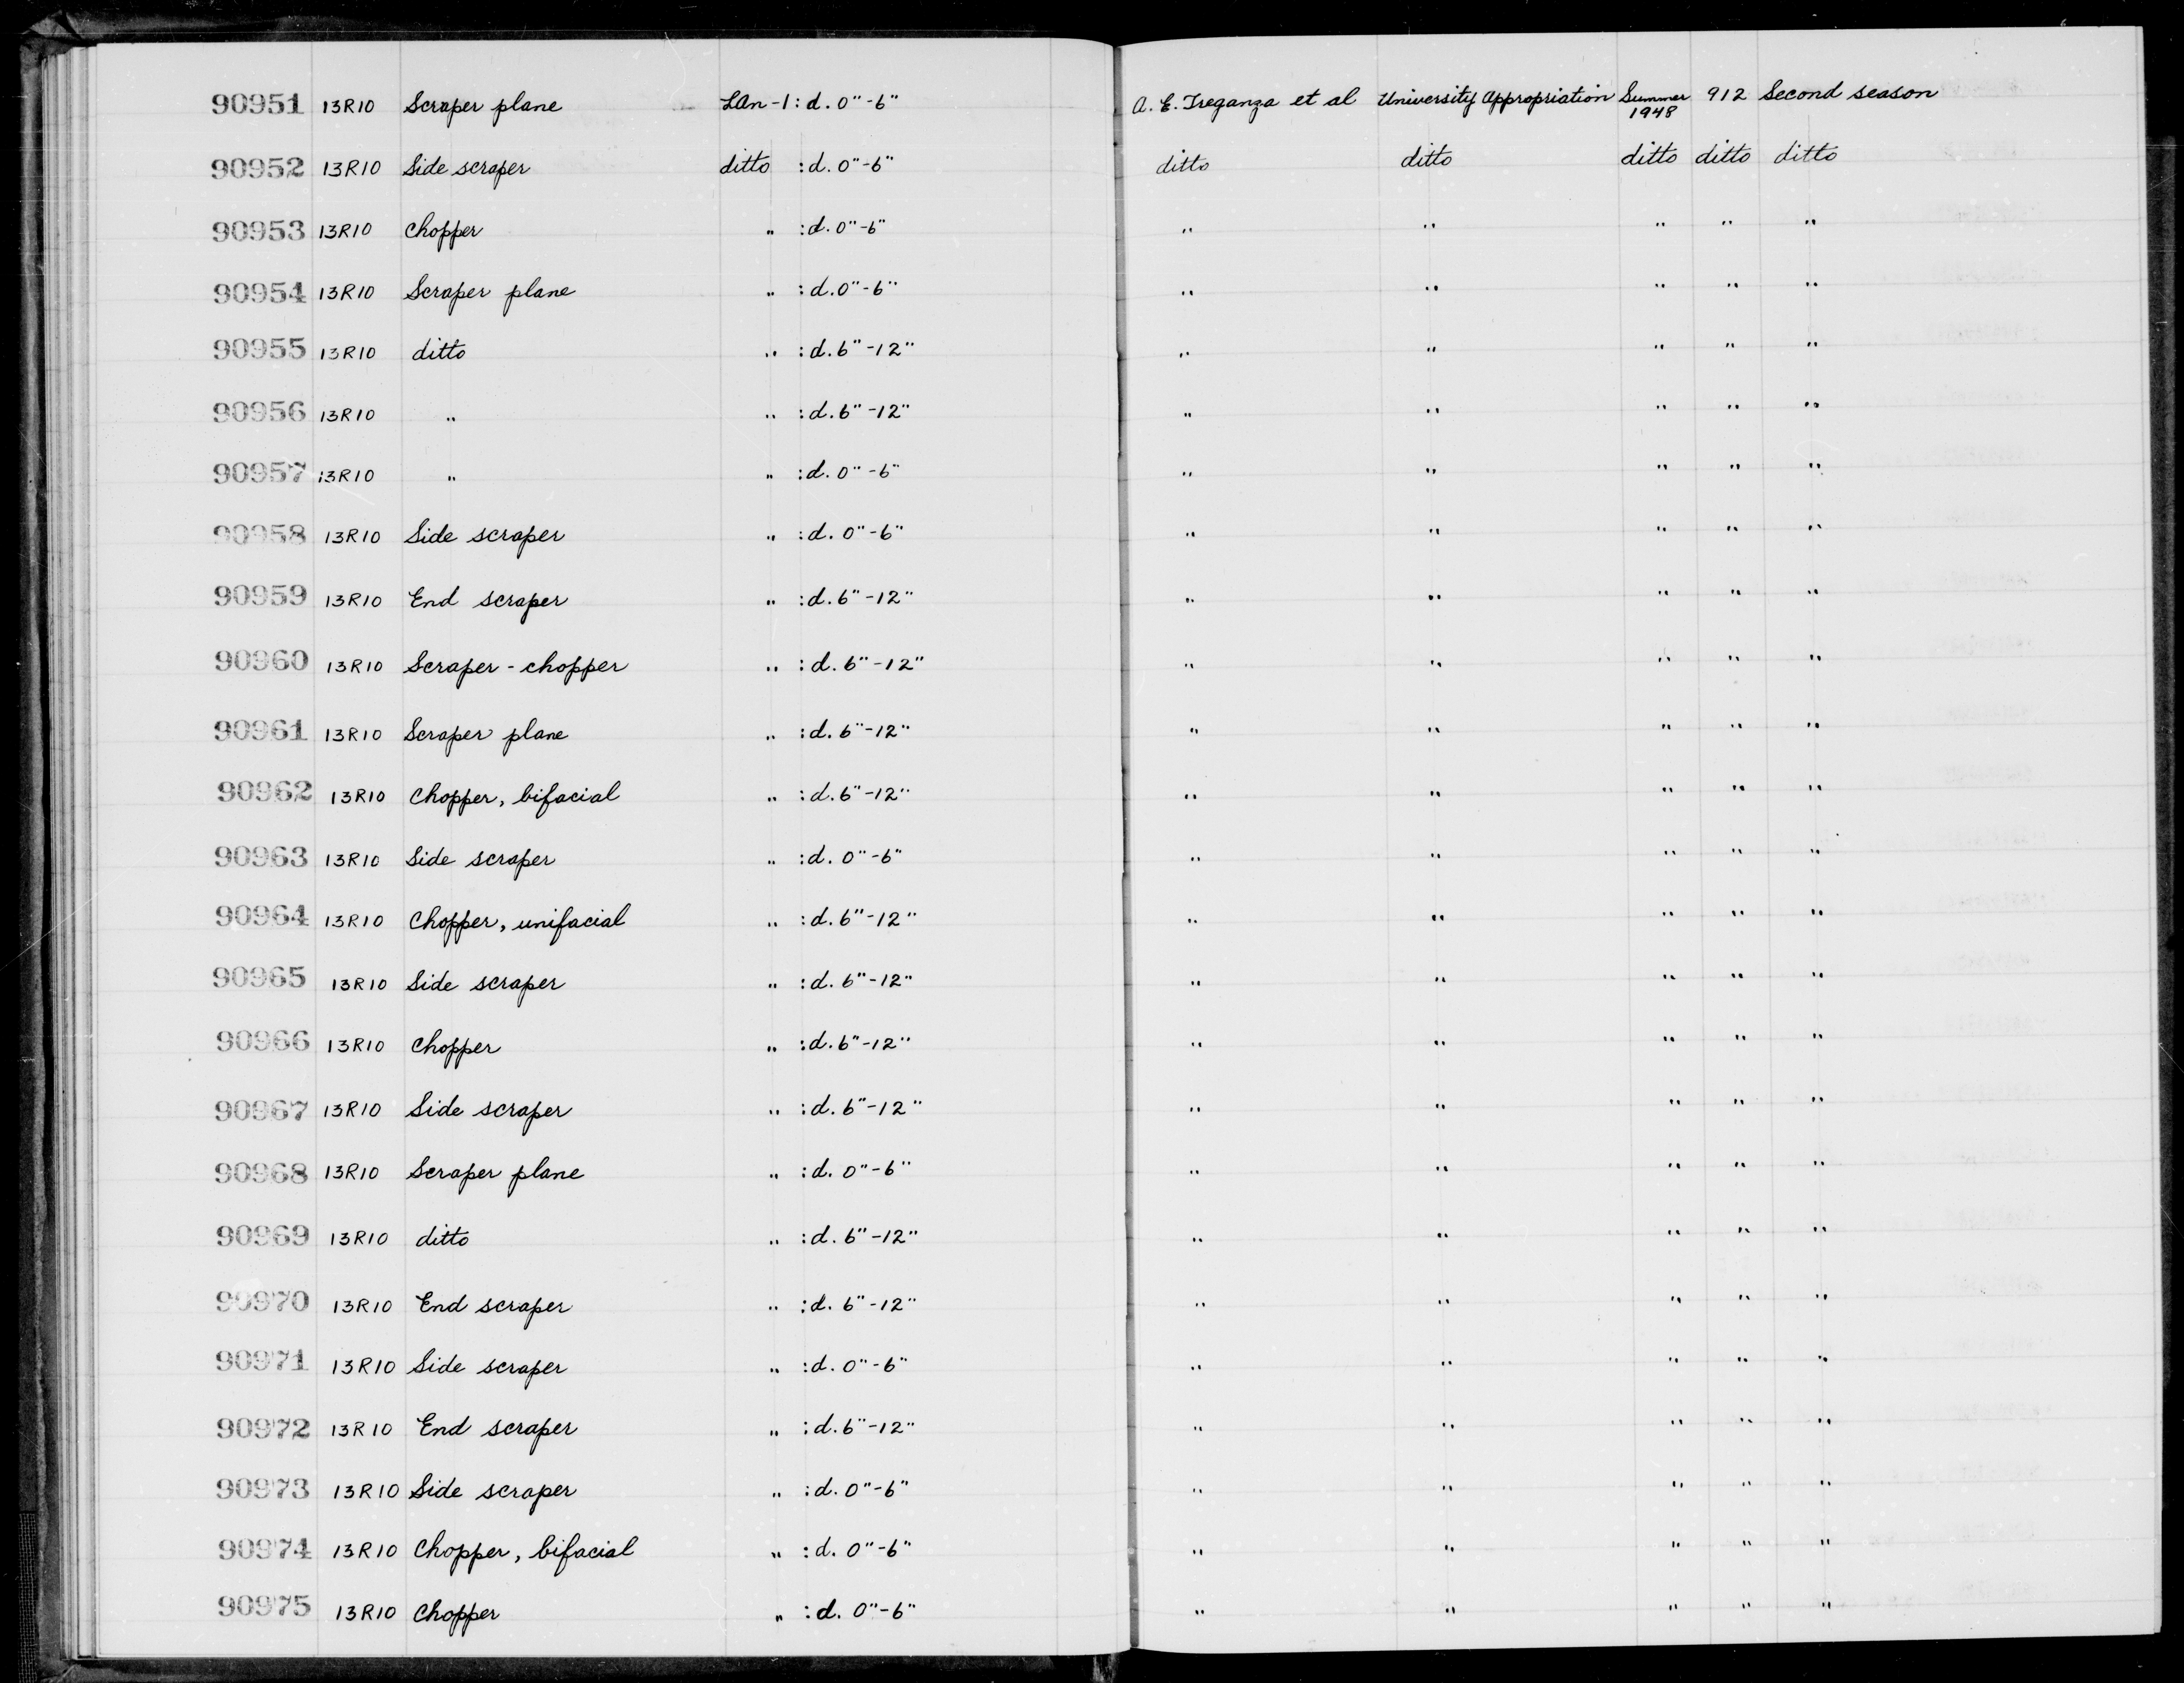 90951 13R10 Scraper plane LAn-1: d. 0"-6" A. E. Treganza et al University Appropriation Summer 1948 912 Second season
90952 13R10 Side scraper ditto : d. 0"-6" ditto ditto ditto ditto ditto
90953 13R10 Chopper " : d. 0"-6" " " " " "
90954 13R10 Scraper plane " : d. 0"-6" " " " " "
90955 13R10 ditto " : d. 6"-12" " " " " "
90956 13R10 " " : d. 6"-12" " " " " "
90957 13R10 " " : d. 0"-6" " " " " "
90958 13R10 Side scraper " : d. 0"-6" " " " " "
90959 13R10 End scraper " : d. 6"-12" " " " " "
90960 13R10 Scraper-chopper " : d. 6"-12" " " " " "
90961 13R10 Scraper plane " : d. 6"-12" " " " " "
90962 13R10 Chopper, bifacial " : d. 6"-12" " " " " "
90963 13R10 Side scraper " : d. 0"-6" " " " " "
90964 13R10 Chopper, unifacial " : d. 6"-12" " " " " "
90965 13R10 Side scraper " : d. 6"-12" " " " " "
90966 13R10 Chopper " : d. 6"-12" " " " " "
90967 13R10 Side scraper " : d. 6"-12" " " " " "
90968 13R10 Scraper plane " : d. 0"-6" " " " " "
90969 13R10 ditto " : d. 6"-12" " " " " "
90970 13R10 End scraper " : d. 6"-12" " " " " "
90971 13R10 Side scraper " : d. 0"-6" " " " " "
90972 13R10 End scraper " : d. 6"-12" " " " " "
90973 13R10 Side scraper " : d. 0"-6" " " " " "
90974 13R10 Chopper, bifacial " : d. 0"-6" " " " " "
90975 13R10 Chopper " : d. 0"-6" " " " " "